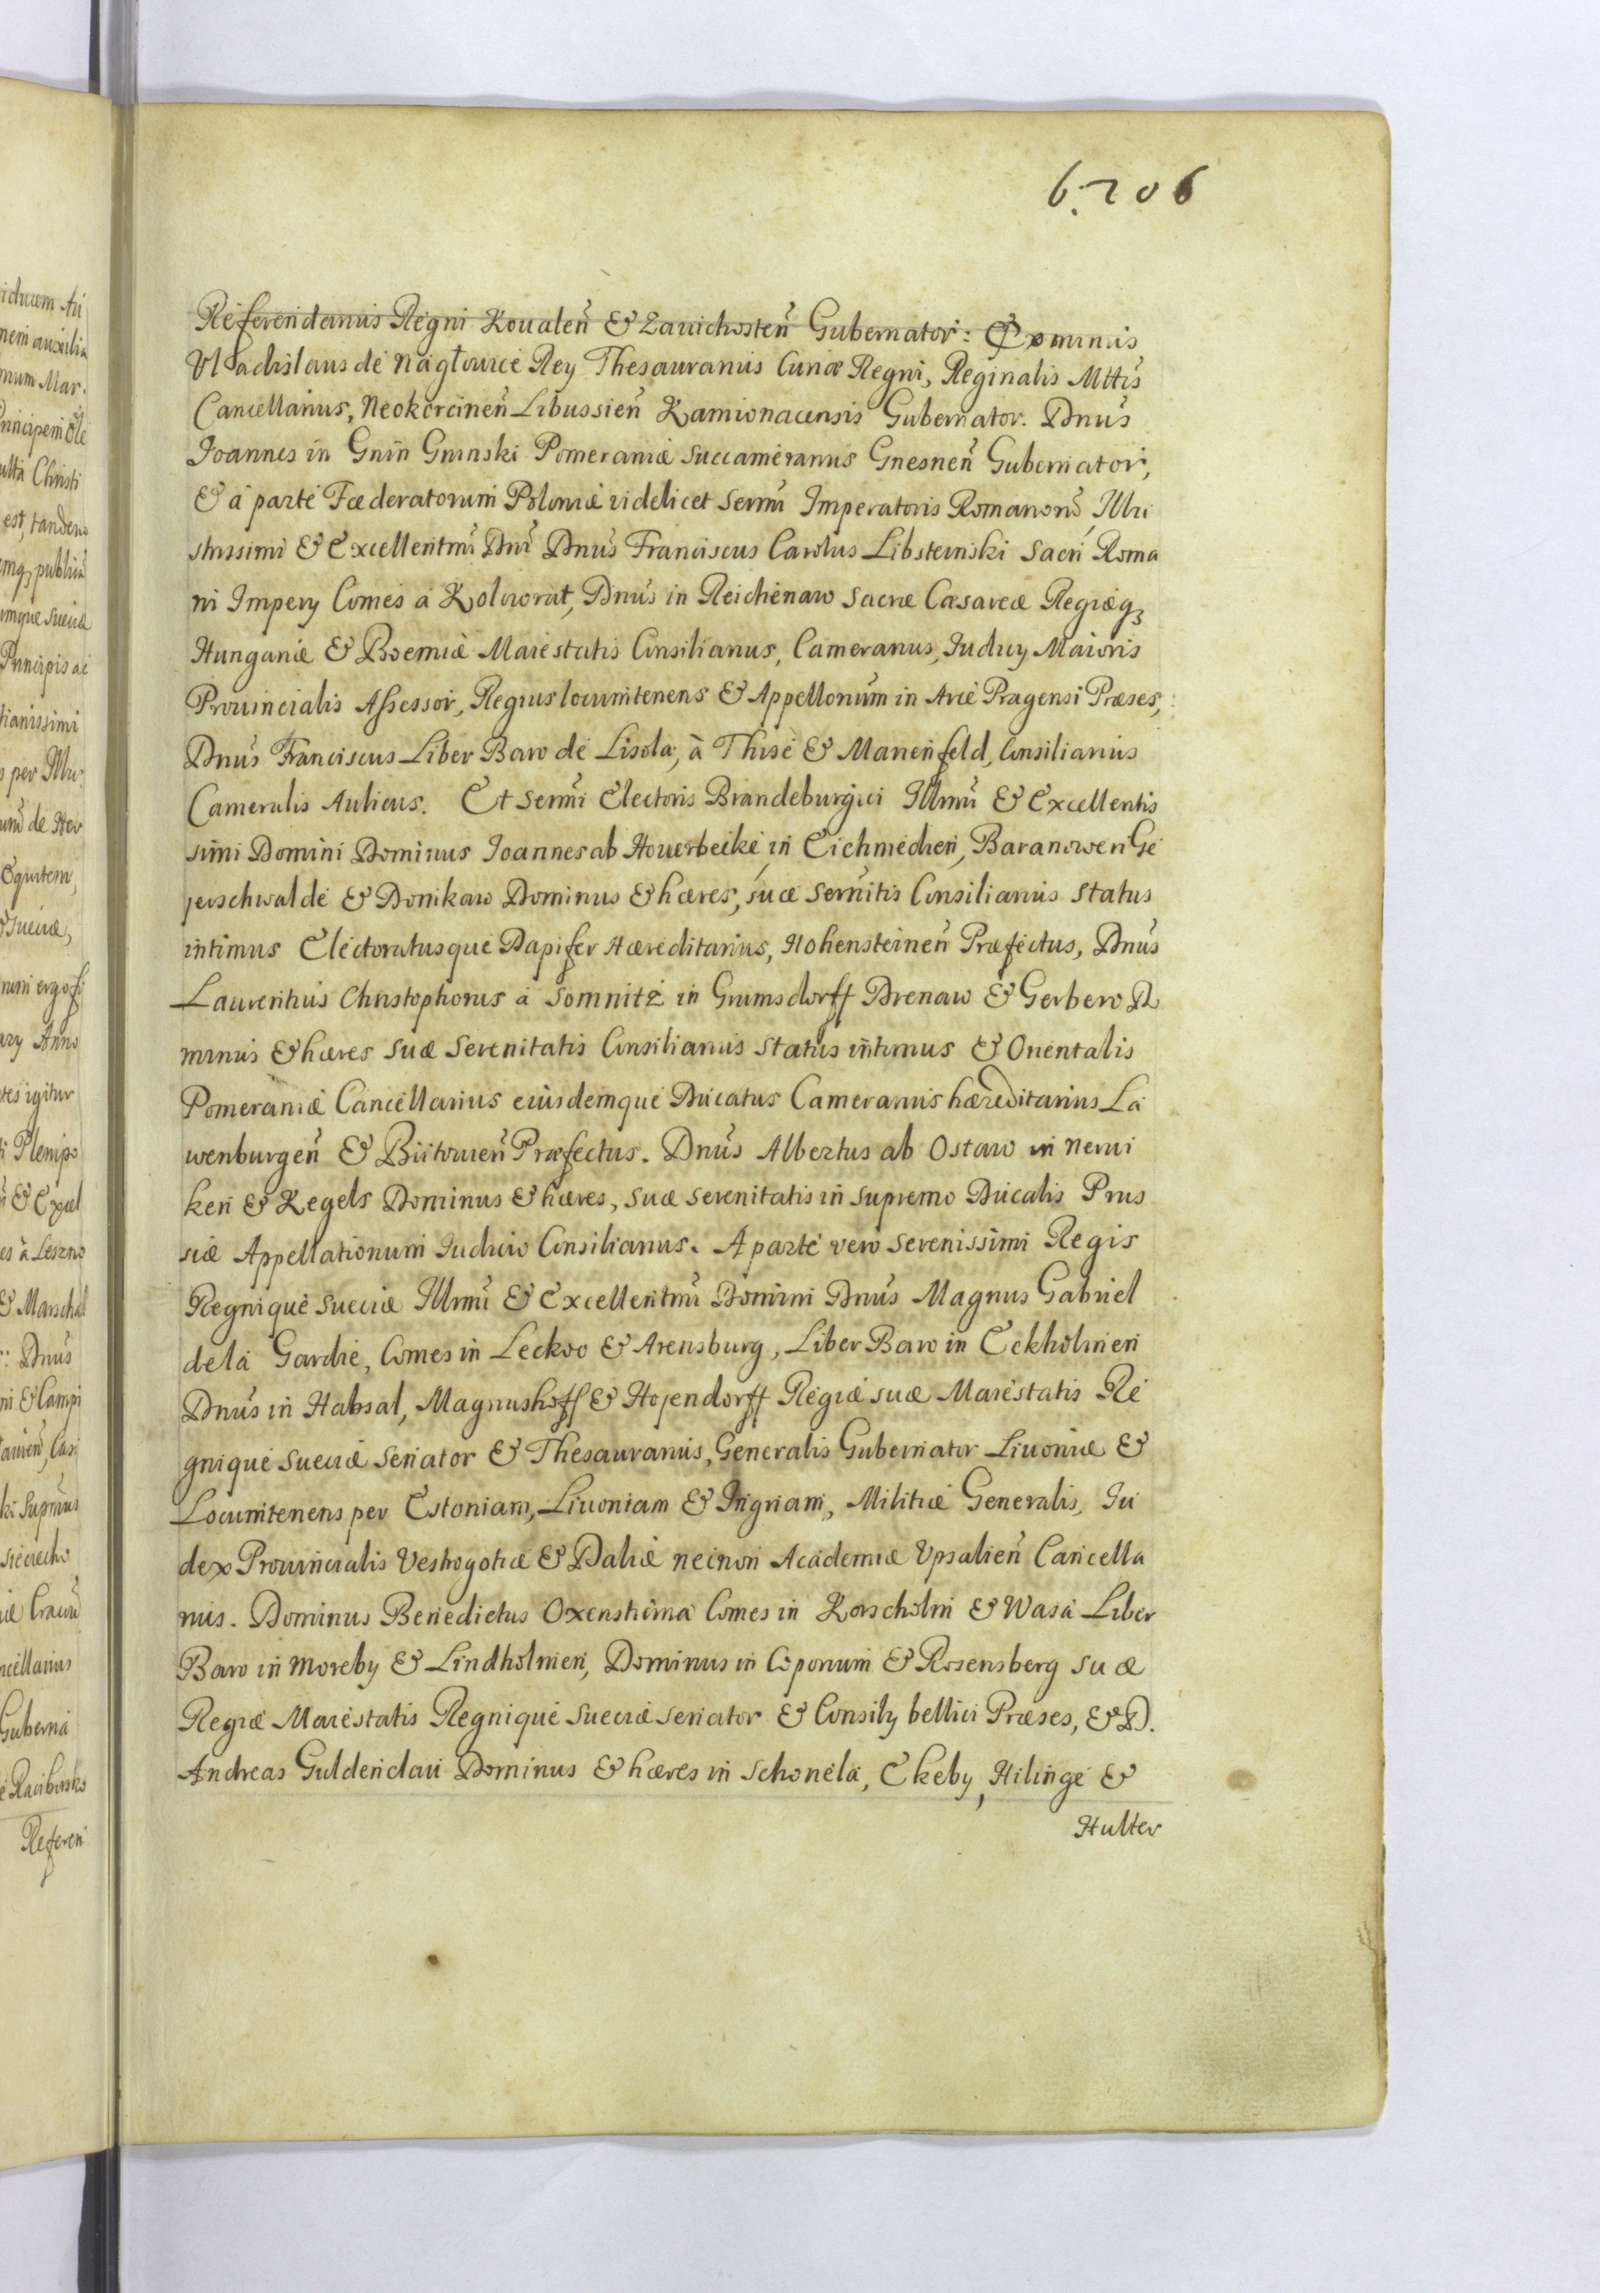 6.206
Referendarius Regni Koualeñ & Zauichosteñ Gubernator: Dominus
Vladislaus de Nagłowice Rey Thesaurarius Curiæ Regni, Reginalis Mttis
Cancellarius, Neokorcineñ Libussieñ Kamionacensis Gubernator. Dnus
Joannes in Gnin Gninski Pomeraniæ Succamerarius Gnesneñ Gubernator,
& à parte Fœderatorum Poloniæ videlicet Sermi Imperatoris Romanorũ, Illu
strissimi & Excellentmi Dni Dnus Franciscus Carolus Libsteinski Sacri Roma
ni Impery Comes à Kolowrat, Dnus in Reichenaw Sacræ Cæsareæ Regiæq3
Hungariæ & Boemiæ Maiestatis Consiliarius, Camerarius, Iudicy Maioris
Prouincialis Assessor, Regius locumtenens & Appellonum in Arce Pragensi Præses,
Dnus Franciscus Liber Baro de Lisola, à Thise & Manenfeld, Consiliarius
Cameralis Aulicus. Et Sermi Electoris Brandeburgici Illmi & Excellentis
simi Domini Dominus Joannes ab Houerbecke in Eichmedien, Baranowen Ge
jerschwalde & Donikaw Dominus & hæres, suæ Sernitis Consiliarius Status
intimus Electoratusque Dapifer Hæreditarius, Hohensteineñ Præfectus, Dnus
Laurentius Christophorus à Somnitz in Grumsdorff Drenaw & Gerbero Do
minus & hæres Suæ Serenitatis Consiliarius Status intimus & Orientalis
Pomeraniæ Cancellarius eiusdemque Ducatus Camerarius hæreditarius La
wenburgeñ & Büitowieñ Præfectus. Dnus Albertus ab Ostaw in nerui
ken & Kegels Dominus & hæres, Suæ Serenitatis in Supremo Ducalis Prus
siæ Appellationum Iudicio Consiliarius. A parte vero Serenissimi Regis
Regnique Sueciæ Illmi & Excellentmi Domini Dnus Magnus Gabriel
de la Gardie, Comes in Leckoo & Arensburg, Liber Baro in Eckholmen
Dnus in Habsal, Magnushoff & Hojendorff Regiæ suæ Maiestatis Re
gnique Sueciæ Senator & Thesaurarius, Generalis Gubernator Liuoniæ &
Locumtenens per Estoniam, Liuoniam & Ingriam, Militiæ Generalis, Iu
dex Prouincialis Vestrogotiæ & Daliæ necnon Academiæ Vpsalieñ Cancella
rius. Dominus Benedictus Oxenstierna Comes in Korscholm & Wasa Liber
Baro in Moreby & Lindholmen, Dominus in Coponum & Rosensberg Suæ
Regiæ Maiestatis Regnique Sueciæ Senator & Consily bellici Præses, & D.
Andreas Guldenclau Dominus & hæres in Schonela, Ekeby, Hilinge &
Hulter